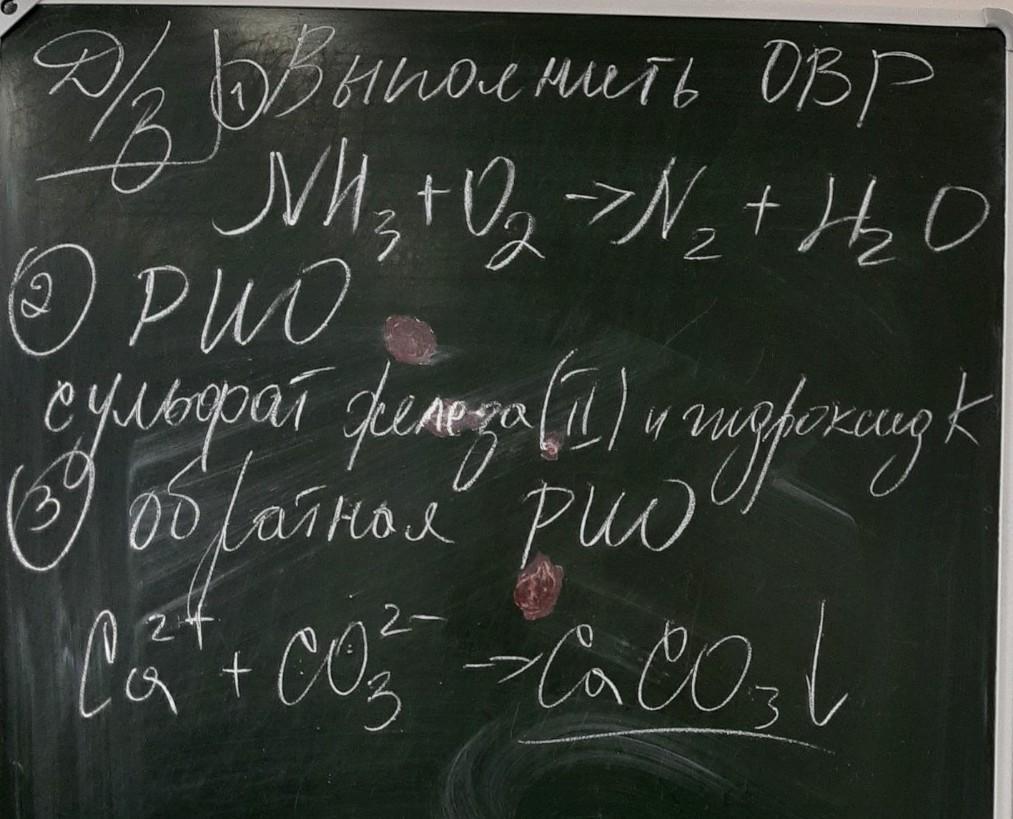 Д/З ① Выполнить ОВР
NH₃ + O₂ → N₂ + H₂O
② РИО
сульфат железа (II) и гидроксид K
③ обратная РИО
Ca²⁺ + CO₃²⁻ → CaCO₃↓